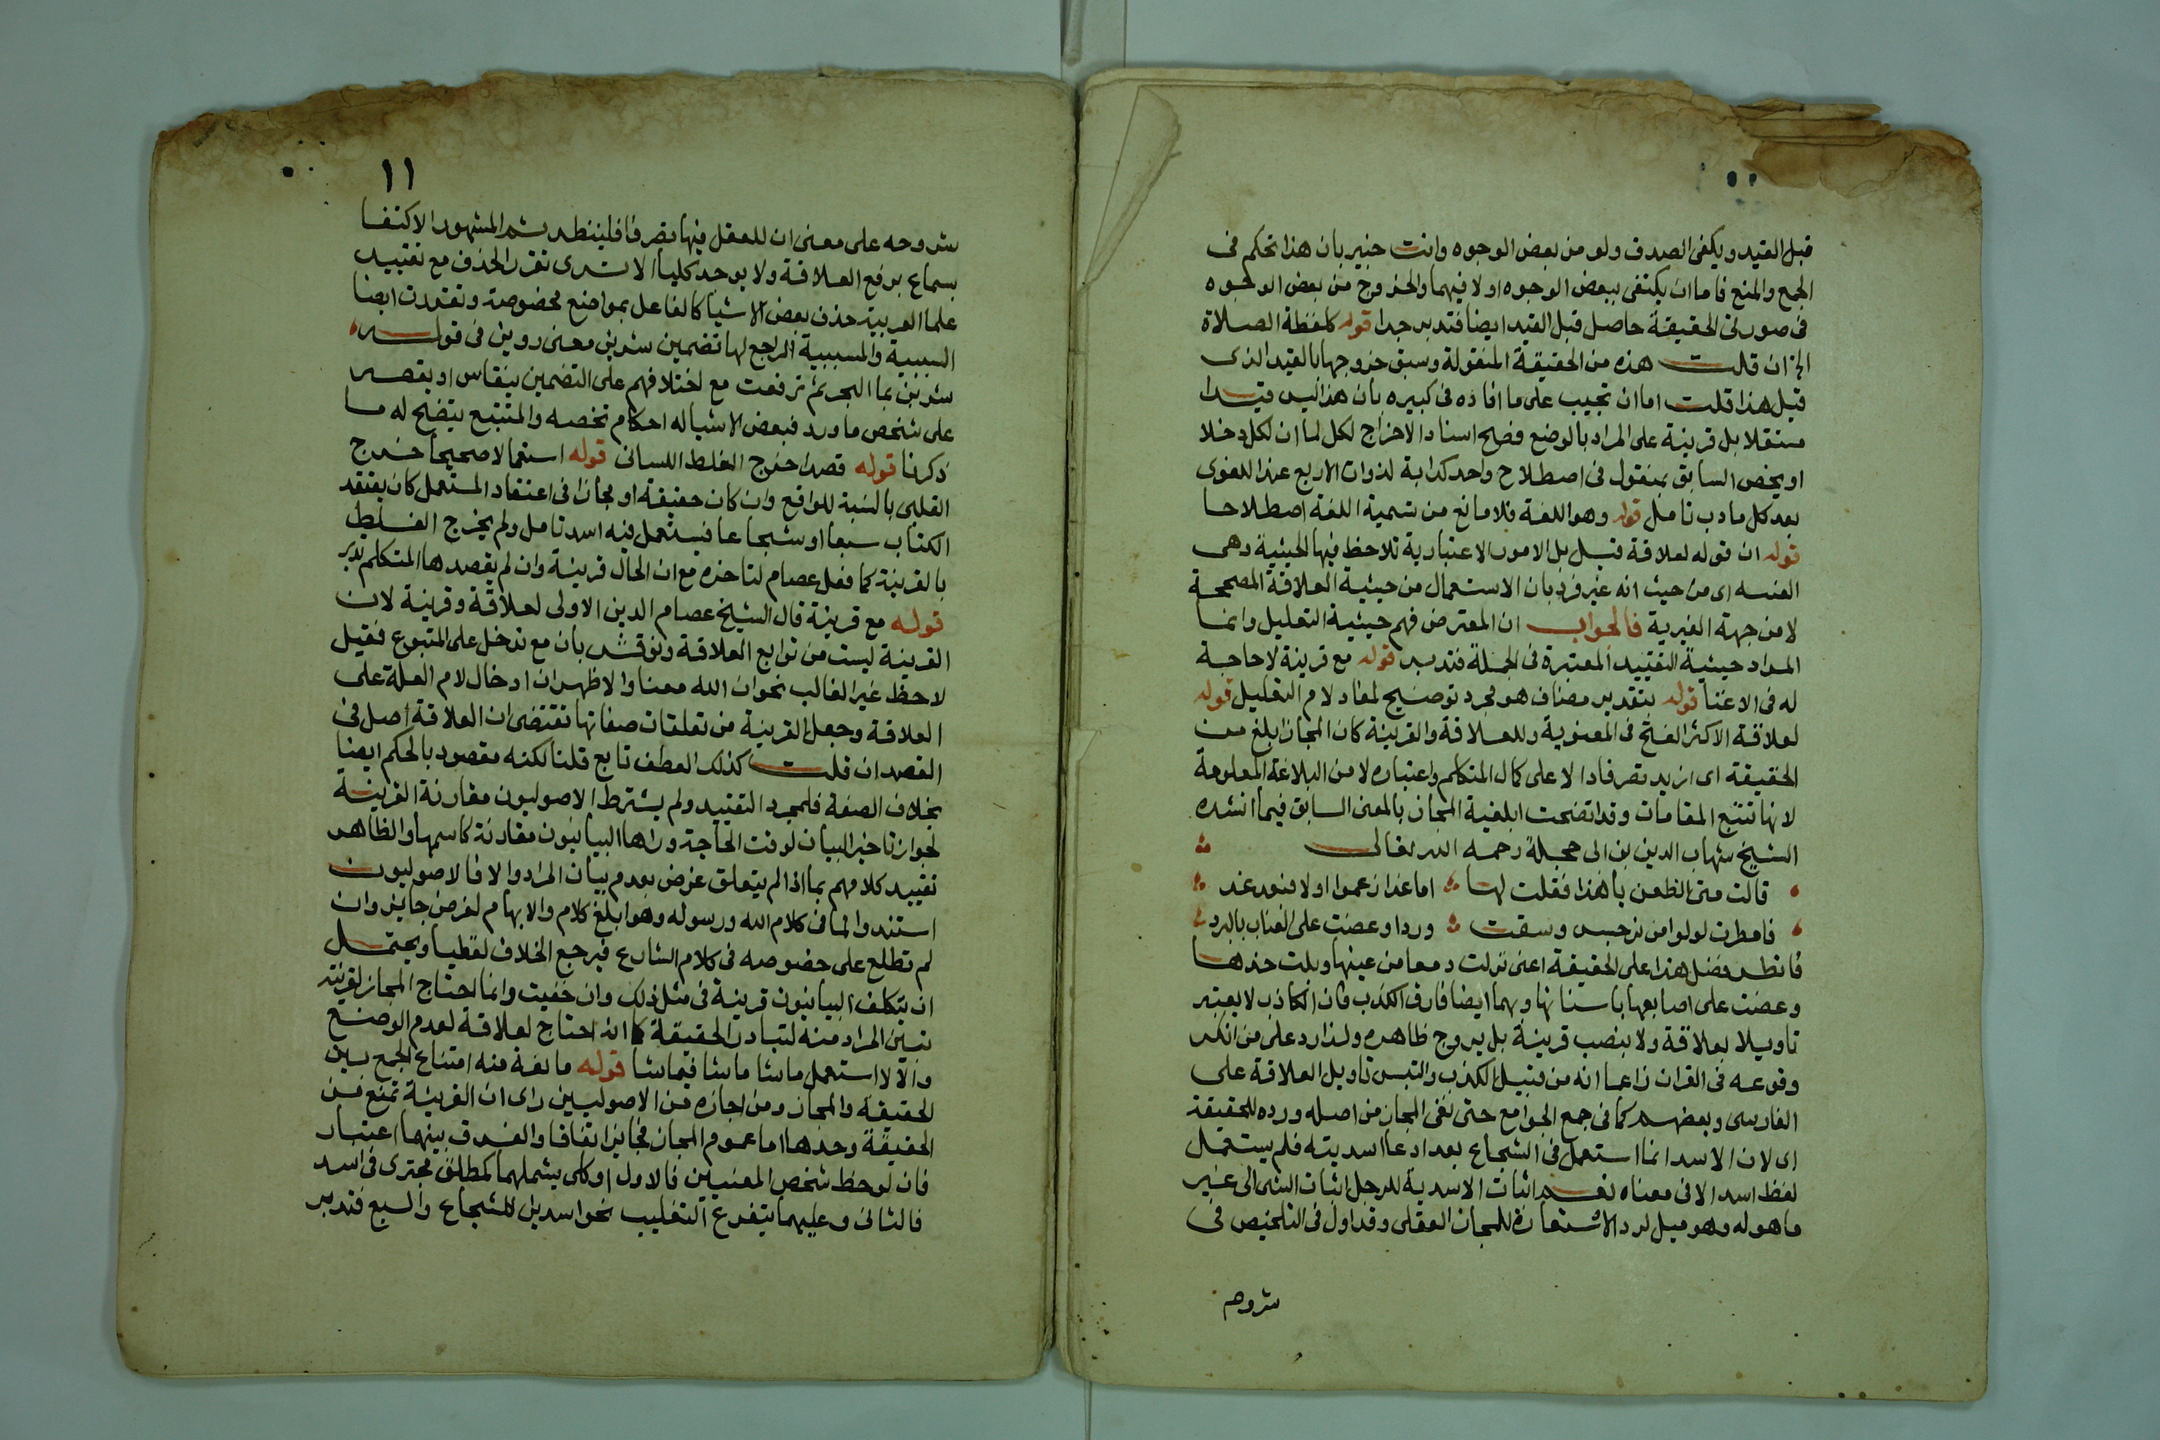 قبل القيد ويكفى الصدق ولو من بعض الوجوه وانت خبير بان هذا تحكم فى
الجمع والمنع فاما ان يكتفى ببعض الوجوه اولا فيهما والخروج من بعض الوجوه
فى صورتى الحقيقة حاصل قبل القيد ايضا فتدبر جدا قوله كلفظة الصلاة
الخ ان قلت هذه من الحقيقة المنقولة وسبق خروجها بالقيد الذى
قبل هذا قلت اما ان تجيب على ما افاده فى كبيره بان هذا ليس قيدا
مستقلا بل قرينة على المراد بالوضع فصح اسناد الاخراج لكل لما ان لكل دخلا
او يخص السابق بمنقول فى اصطلاح واحد كدابة لذوات الاربع عند اللغوى
بعد كل مادب تامل قوله وهو اللغة فلا مانع من تسمية اللغة اصطلاحا
قوله ان قوله لعلاقة قبل بل الامور الاعتبارية تلاحظ فيها الحيثية وهى
الغسه اى من حيث انه غير فرد بان الاستعمال من حيثية العلاقة المصححة
لا من جهة الغيرية فالجواب ان المعترض فهم حيثية التعليل وانما
المراد حيثية التقييد المعتبرة فى الجملة فتدبر قوله مع قرينة لا حاجة
له فى الاغنا قوله بتقدير مضاف هو مجرد توضيح لمفاد لام التعليل قوله
لعلاقة الاكثر الفتح فى المعنوية وللعلاقة والقرينة كان المجاز ابلغ من
الحقيقة اى ازيد تصرفا دالا على كمال المتكلم واعتباره لا من البلاغة المعلومة
لانها تتبع المقامات وقد اتضحت ابلغية المجاز بالمعنى السابق فيما انشده
الشيخ شهاب الدين بن ابى حجلة رحمه الله تعالى
قالت متى الظعن يا هذا فقلت لها اما غدا زعموا اولا فبعد غد
فامطرت لولوا من نرجس وسقت وردا وعضت على العناب بالبرد
فانظر فضل هذا على الحقيقة اعنى نزلت دمعا من عينها وبلت خدها
وعضت على اصابعها باسنانها وبهما ايضا فارق الكذب فان الكاذب لا يعتبر
تاويلا بعلاقة ولا ينصب قرينة بل يروج ظاهره ولذا رد على من انكر
وقوعه فى القران زاعما انه من قبيل الكذب والتبس تاويل العلاقة على
الفارسى وبعضهم كما فى جمع الجوامع حتى نفى المجاز من اصله ورده للحقيقة
اى لان الاسد انما استعمل فى الشجاع بعد ادعا اسديته فلم يستعمل
لفظ اسد الا فى معناه نعم اثبات الاسدية للرجل اثبات الشى الى غير
ما هو له وهو ميل لرد الاستعارة للمجاز العقلى وقد اول فى التلخيص فى
شروحه
١١
شروحه على معنى ان للعقل فيها تصرفا فلينظر ثم المشهور الاكتفا
بسماع نوع العلاقة ولا يوحد كليا الا ترى تقرر الحذف مع تقييد
علما العربية حذف بعض الاشيا كالفاعل بمواضع مخصوصة وتقررت ايضا
السببية والمسببية الراجع لها تضمين شربن معنى روين فى قوله
شربن بما البحر ثم ترفعت مع اختلافهم على التضمين ينقاس او يقصر
على شخص ما ورد فبعض الاشيا له احكام تخصه والمتتبع يتضح له ما
ذكرنا قوله قصدا خرج الغلط اللسانى قوله استعمالا صحيحا خرج
القلبى بالنسبة للواقع وان كان حقيقة او مجازا فى اعتقاد المستعمل كان يعتقد
الكتاب سبعا او شجاعا فيستعمل فيه اسد تامل ولم يخرج الغلط
بالقرينة كما فعل عصام لتاخره مع ان الحال قرينة وان لم يقصدها المتكلم تدبر
قوله مع قرينة قال الشيخ عصام الدين الاولى لعلاقة وقرينة لان
القرينة ليست من توابع العلاقة ونوقش بان مع تدخل على المتبوع فقيل
لاحظ غير الغالب نحو ان الله معنا والاظهر ان ادخال لام العلة على
العلاقة وجعل القرينة من تعلقات صفاتها تقتضى ان العلاقة اصل فى
القصد ان قلت كذلك العطف تابع قلنا لكنه مقصود بالحكم ايضا
بخلاف الصفة فلمجرد التقييد ولم يشترط الاصوليون مقارنة القرينة
لجواز تاخير البيان لوقت الحاجة وراها البيانيون مقارنة كاسمها والظاهر
تقييد كلامهم بما اذا لم يتعلق غرض بعدم بيان المراد والا فالاصوليون
استندوا لما فى كلام الله ورسوله وهو ابلغ كلام والابهام لغرض جايز وان
لم تطلع على خصوصه فى كلام الشارع فيرجع الخلاف لفظيا ويحتمل
ان يتكلف البيانيون قرينة فى مثل ذلك وان خفيت وانما احتاج المجاز لقرينة
تبين المراد منه لتبادر الحقيقة كما انه احتاج لعلاقة لعدم الوضع
والا لاستعمل ما شا ما شا فيما شا قوله مانعة منه امتناع الجمع بين
الحقيقة والمجاز ومن اجازه من الاصوليين راى ان القرينة تمنع من
الحقيقة وحدها اما عموم المجاز فجايز اتفاقا والفرق بينهما اعتبار
فان لوحظ شخص المعنيين فالاول او كلى يشملهما كمطلق مجترى فى اسد
فالثانى وعليهما يتفرع التغليب نحو اسدين للشجاع والسبع فتدبر